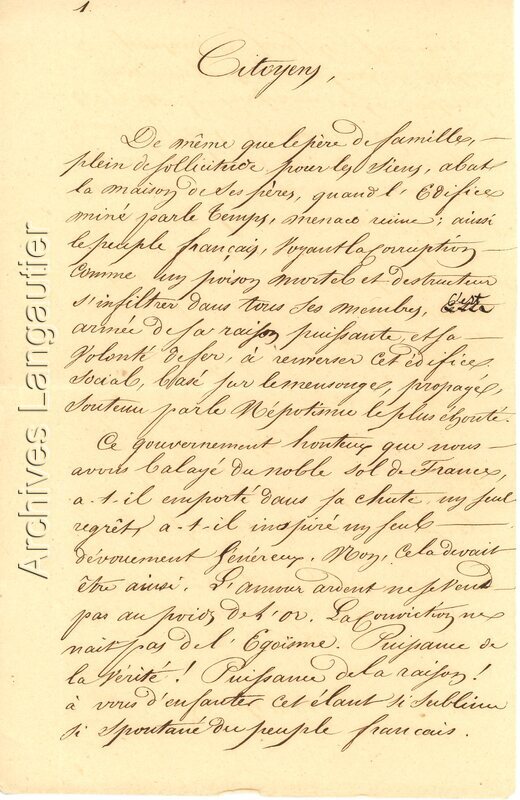 1
Citoyens,
De même que le père de famille,
plein de sollicitude pour les siens, abat
la maison de ses pères, quand l'Edifice
miné par le temps, menace ruine; ainsi
le peuple français, voyant la Corruption
comme un poison mortel et destructeur
s'infiltrer dans tous ses membres, s'est
armée de sa raison puissante, et sa
volonté de fer, à renverser cet édifice
social, basé sur le mensonge, propagé,
soutenu par le Népotisme le plus éhonté.
Ce gouvernement honteux que nous
avons balayé du noble sol de France,
a-t-il emporté dans sa chute un seul
regrêt, a-t-il inspiré un seul
dévouement Généreux. Non, cela devait
être ainsi. L'amour ardent ne se vend
pas au poids de l'or. La Conviction ne
nait pas de l'Egoïsme. Puissance de
la Vérité! Puissance de la raison!
à vous d'enfanter cet élant si sublime
si spontané du peuple français.
Archives Langautier